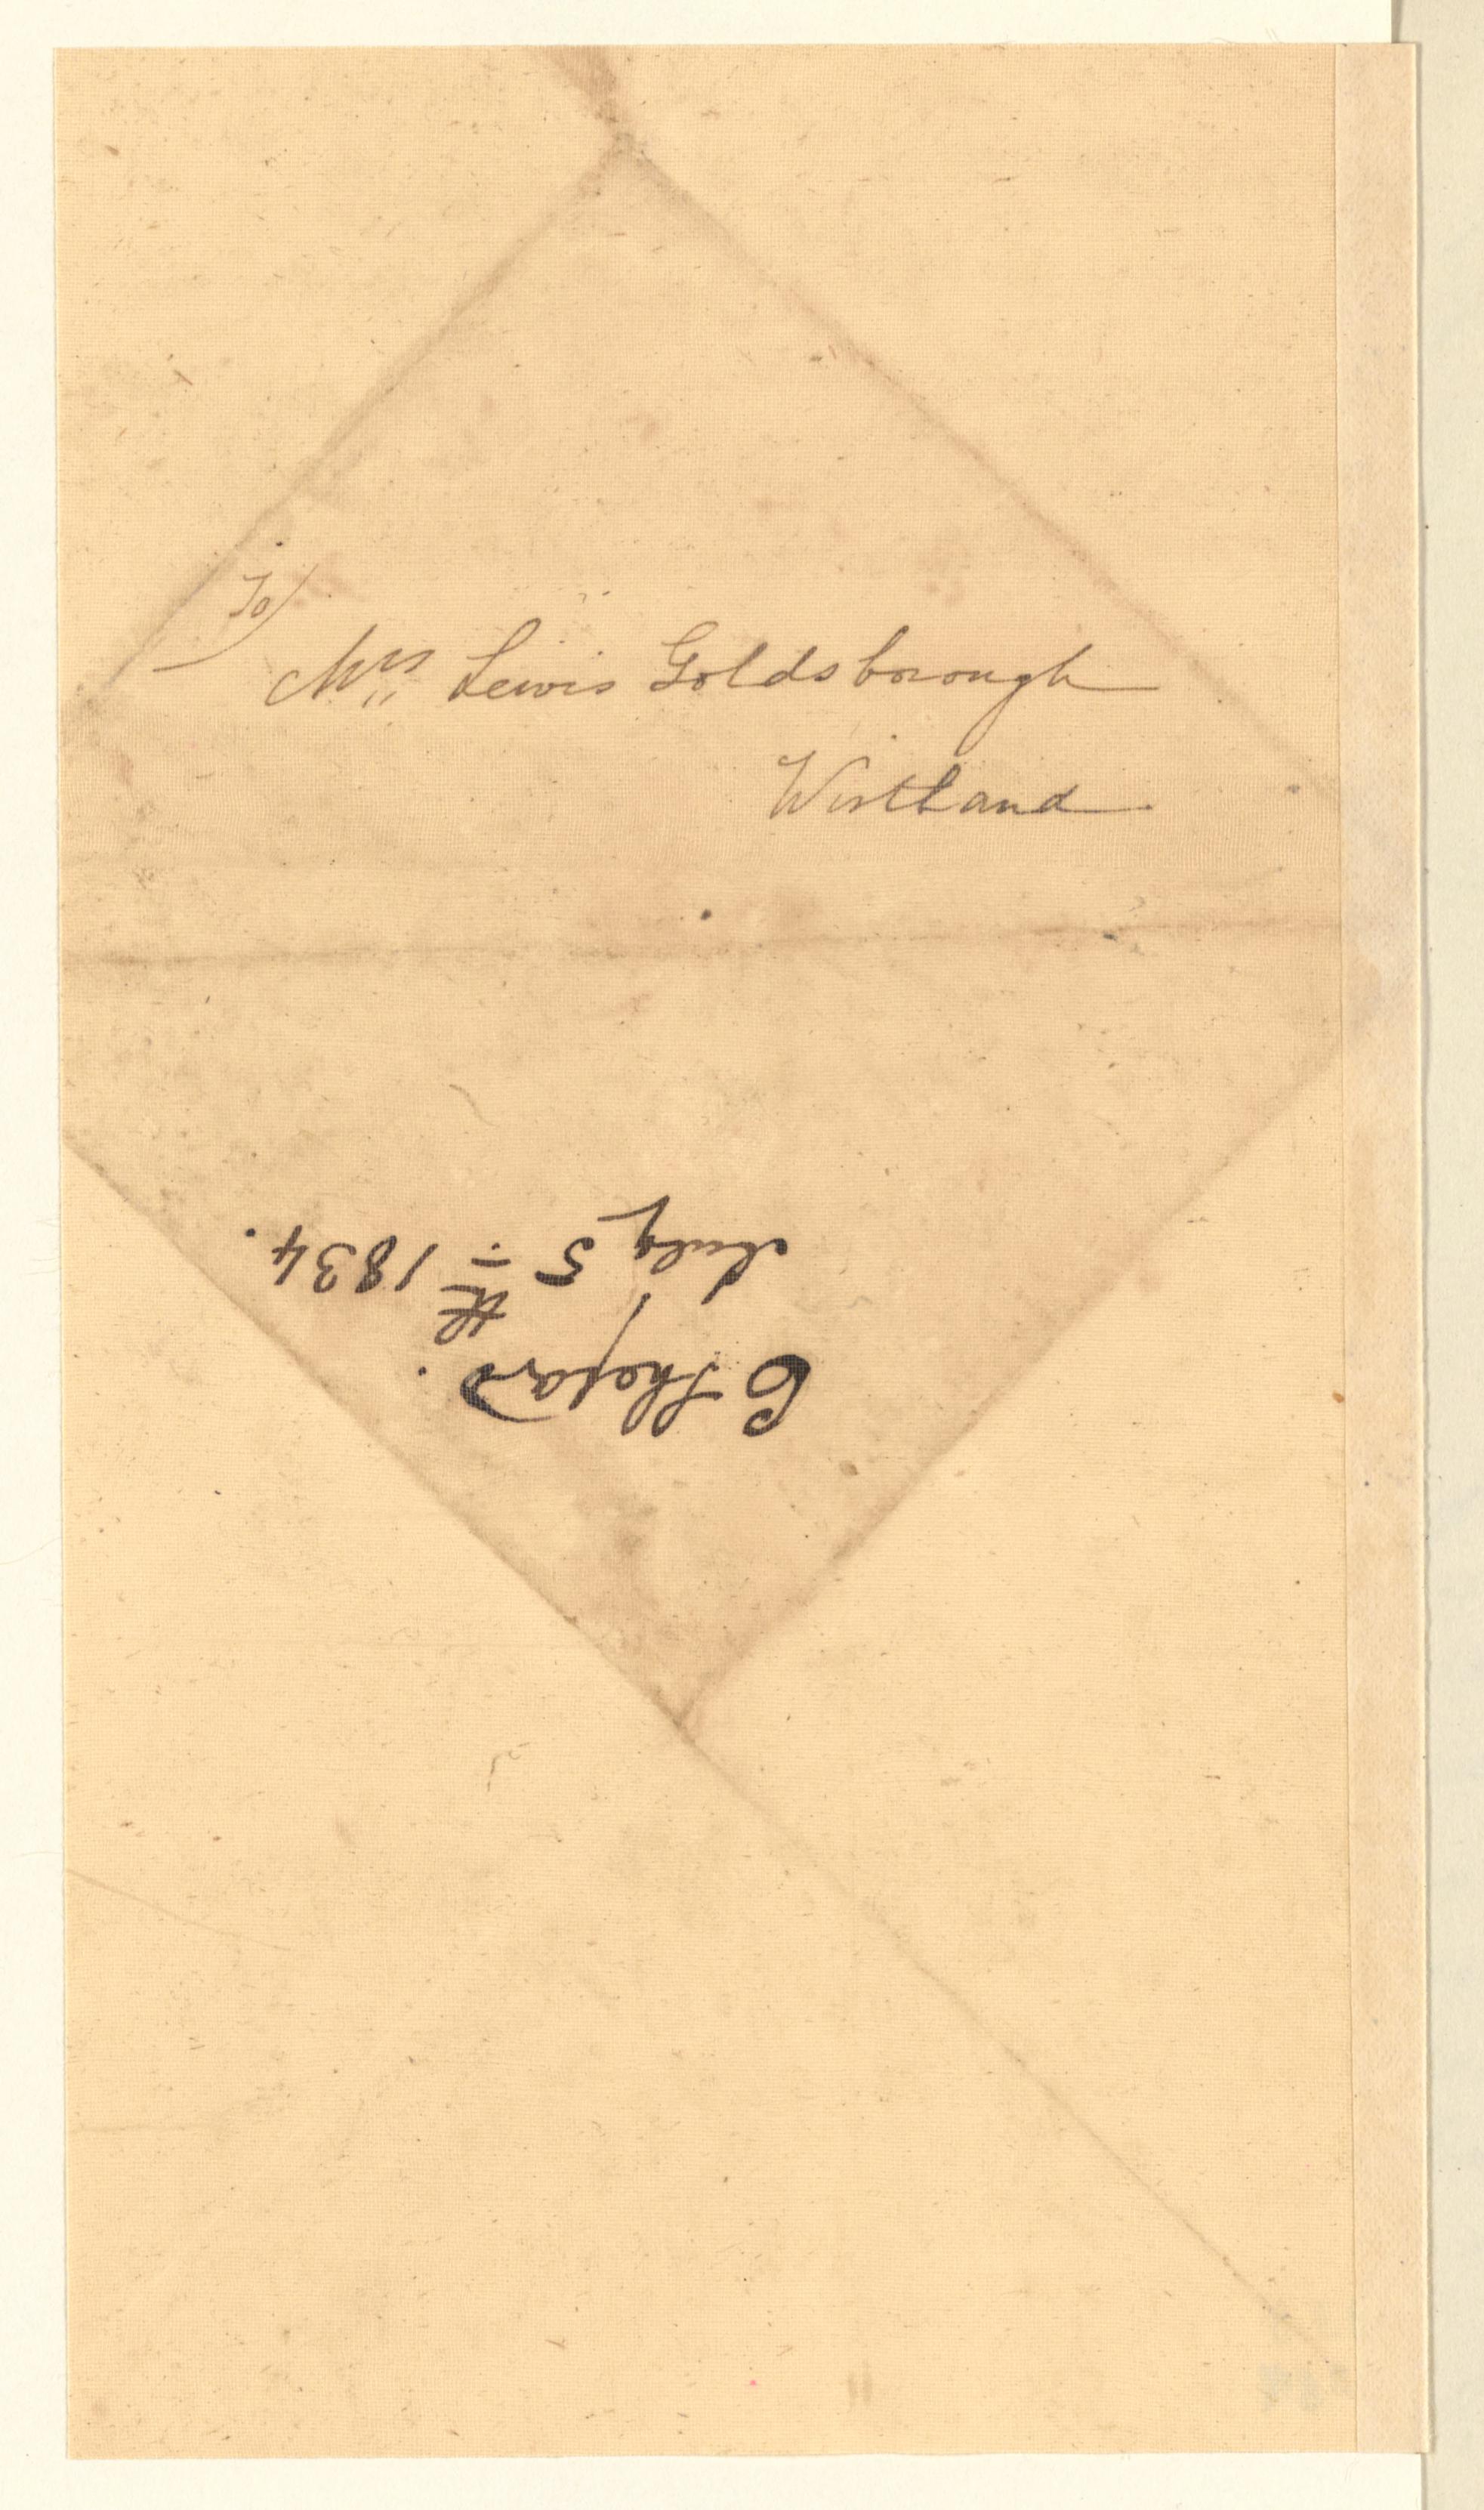 To
Mrs Lewis Goldsborough
Wirtland
C Shepard.
July 5th 1834.